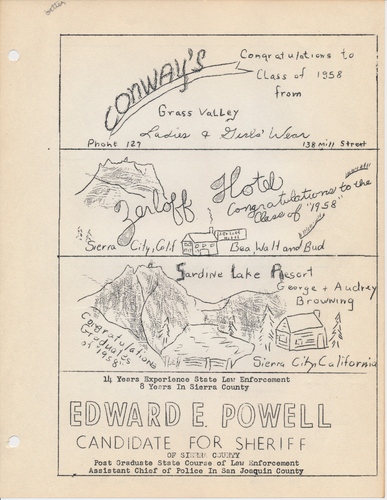 CONWAY'S
Congratulations to
Class of 1958
from
Grass Valley
Ladies & Girls' Wear
Phone 127
138 Mill Street
Zerloff Hotel
Congratulations to the
Class of "1958"
Sierra City, Calif
Bea, Walt and Bud
Sardine Lake Resort
George + Audrey
Browning
Congratulations
Graduates
of 1958
Sierra City, California
14 Years Experience State Law Enforcement
8 Years In Sierra County
EDWARD E. POWELL
CANDIDATE FOR SHERIFF
OF SIERRA COUNTY
Post Graduate State Course of Law Enforcement
Assistant Chief of Police In San Joaquin County